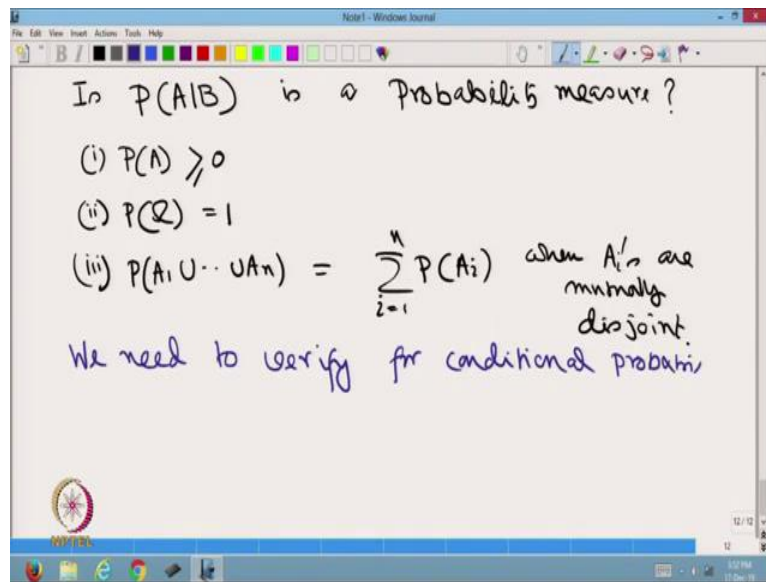 Note1 - Windows Journal
File Edit View Insert Actions Tools Help
Is P(A|B) is a Probability measure?
(i) P(A) ≥ 0
(ii) P(Ω) = 1
(iii) P(A₁ ∪ ·· ∪ Aₙ) = ∑ⁿᵢ₌₁ P(Aᵢ) when Aᵢ's are
mutually
disjoint.
We need to verify for conditional probabi
NPTEL
12 / 12
12
3:52 PM